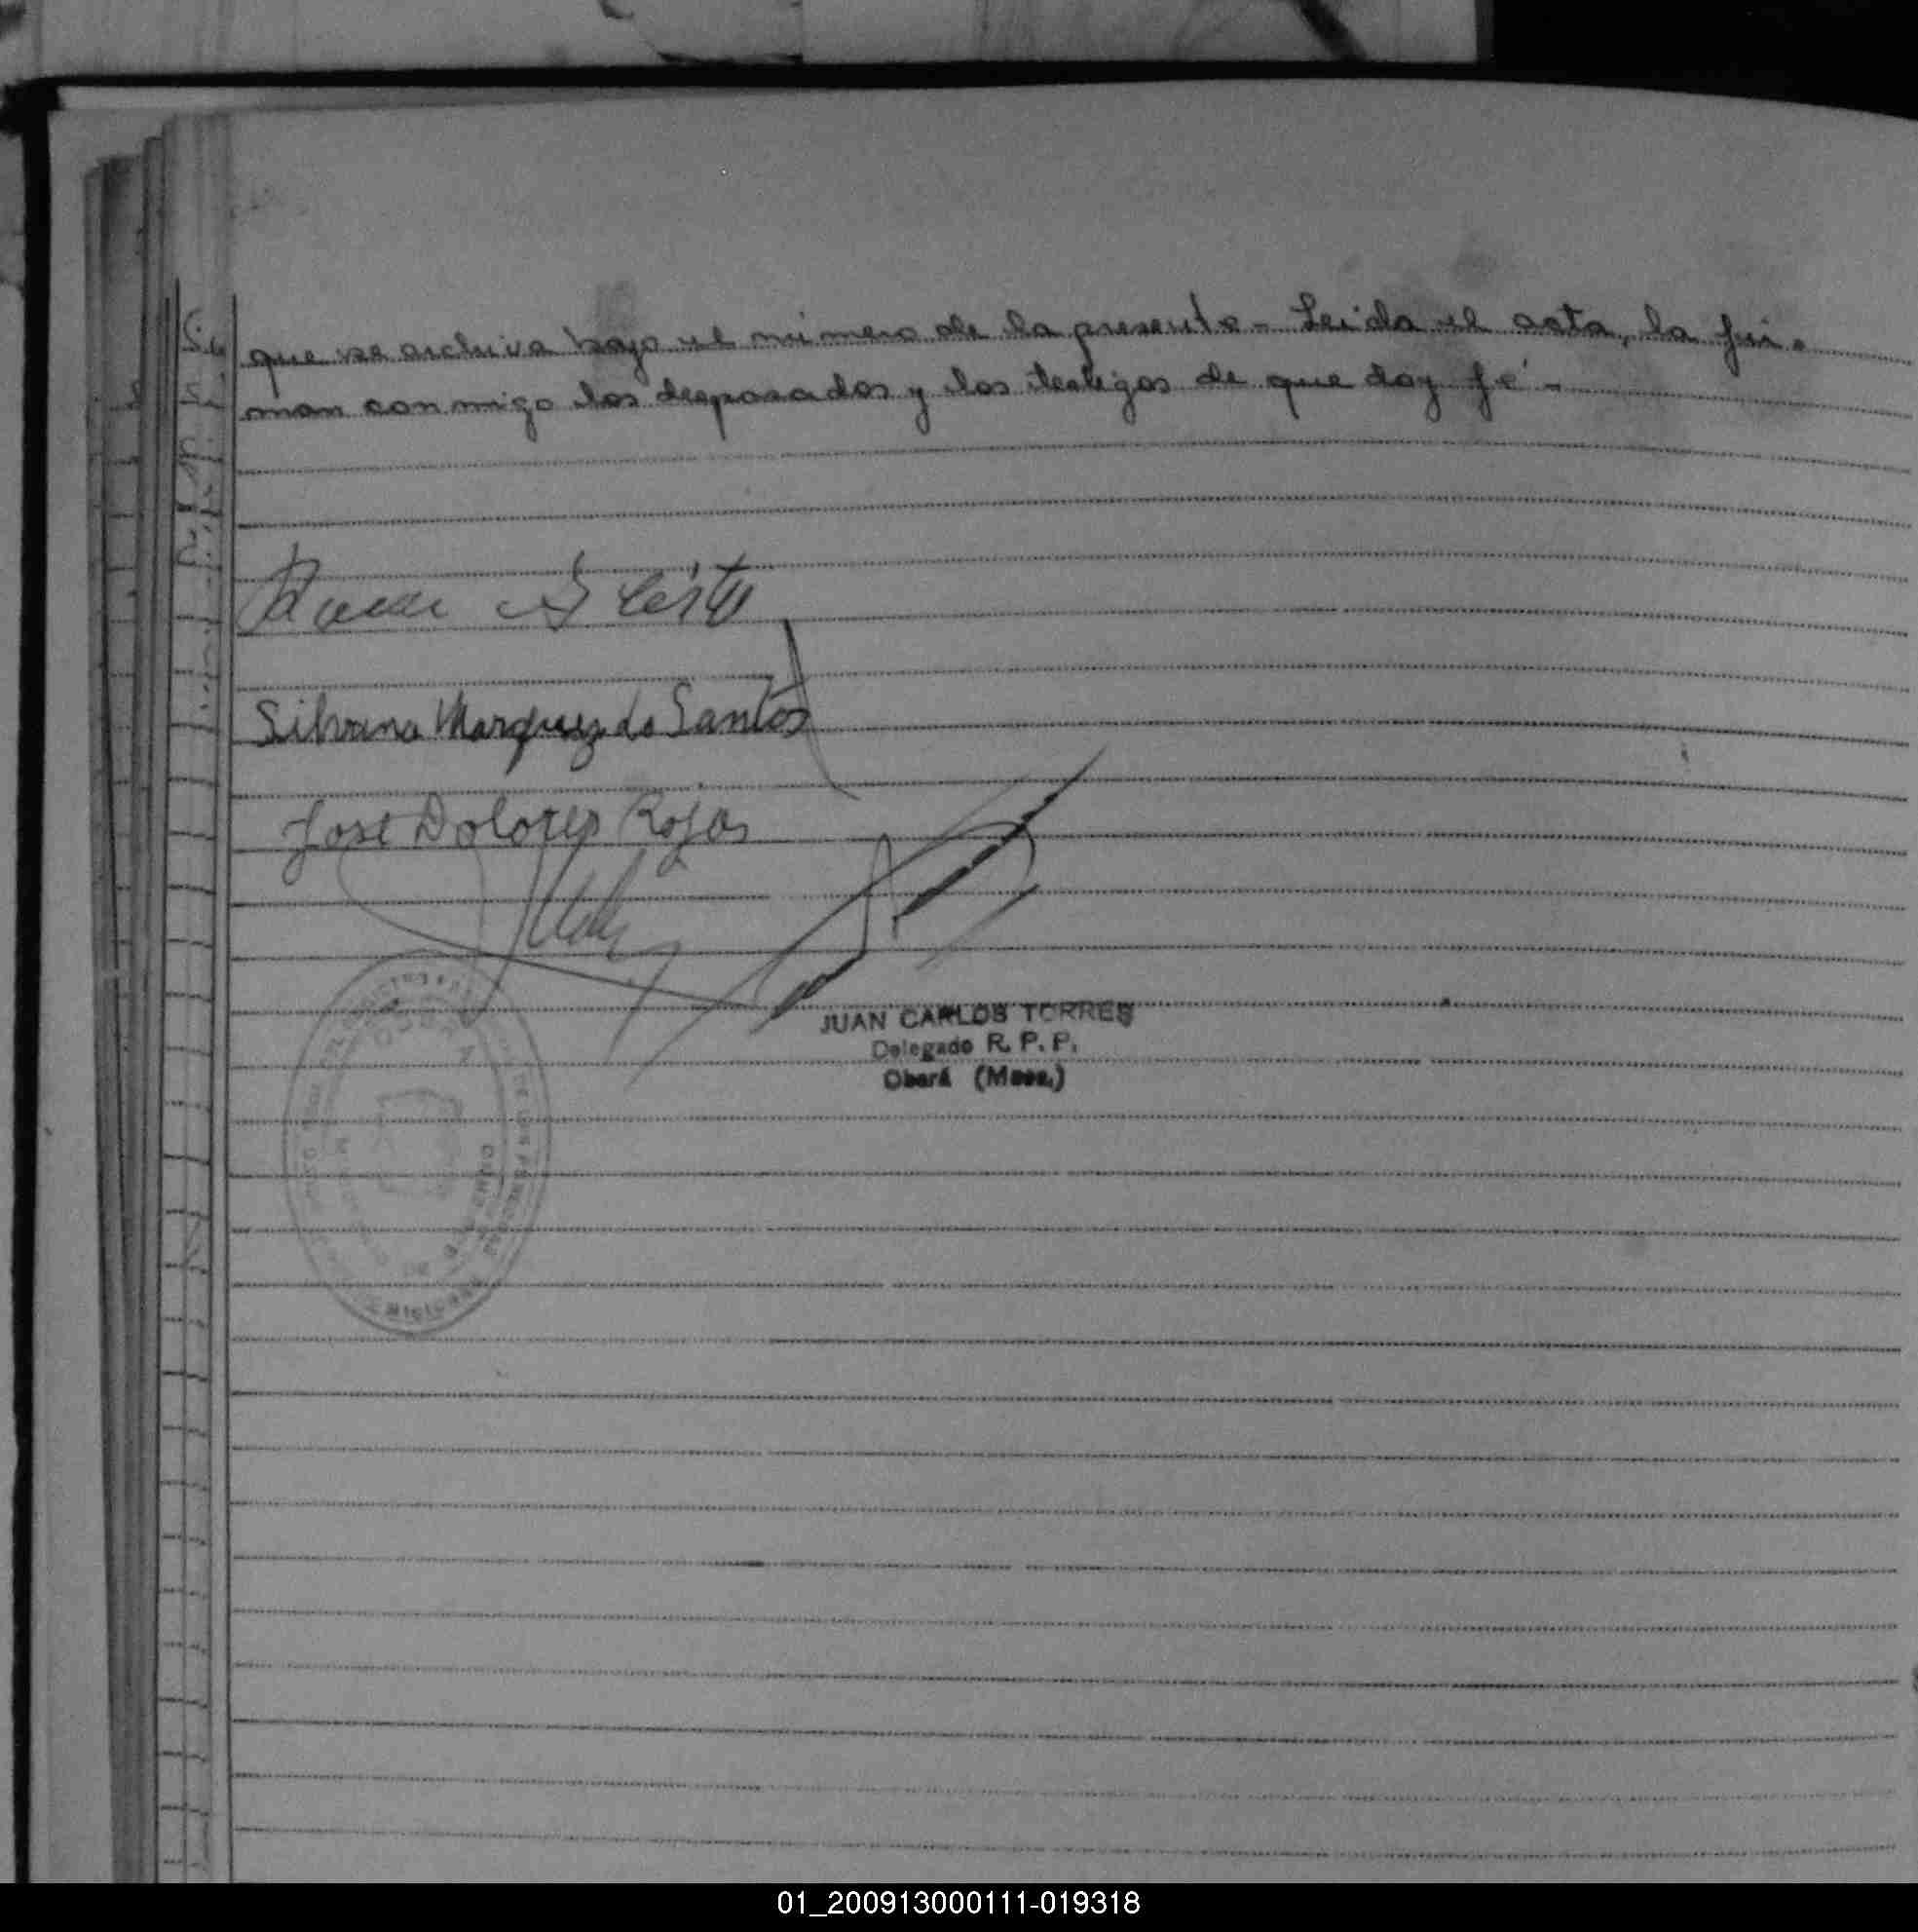 que se archiva bajo el número de la presente - Leída el acta, la fir-
man conmigo los desposados y los testigos de que doy fé -
Silvana Marquez do Santos
José Dolores Rojas
JUAN CARLOS TORRES
Delegado R. P. P.
Oberá (Mnes.)
01_200913000111-019318